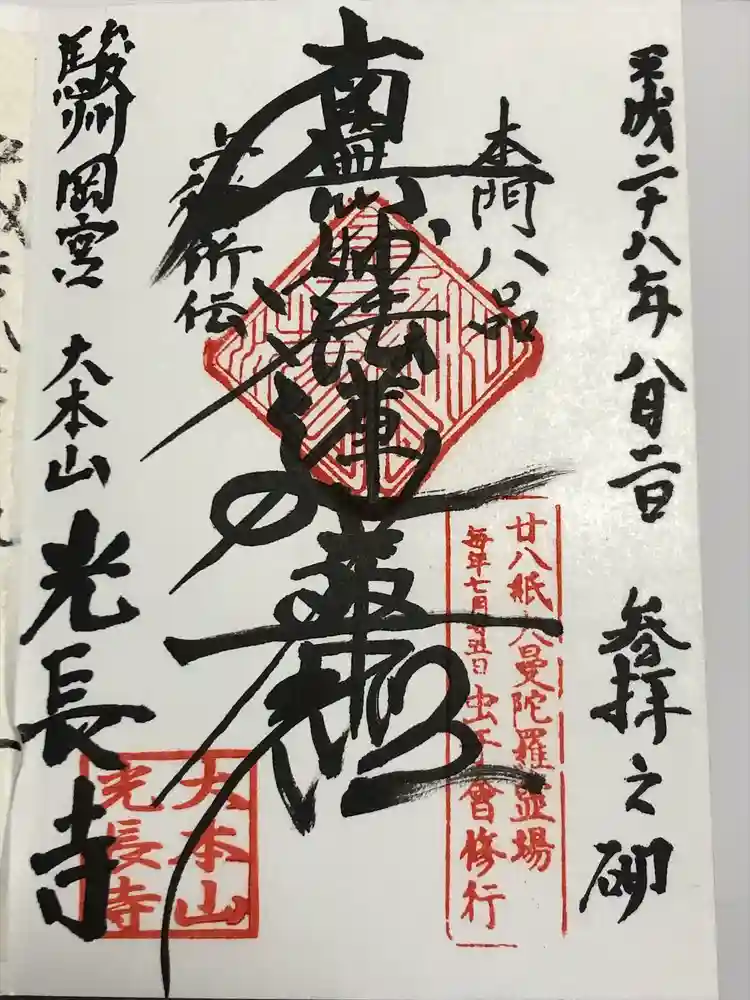 平成二十八年八月二日 参拝之砌
本門八品
廿八紙大曼陀羅霊場
毎年七月廿五日 虫干會修行
南無妙法蓮華経
所伝
駿州岡宮 大本山 光長寺
大本山
光長寺